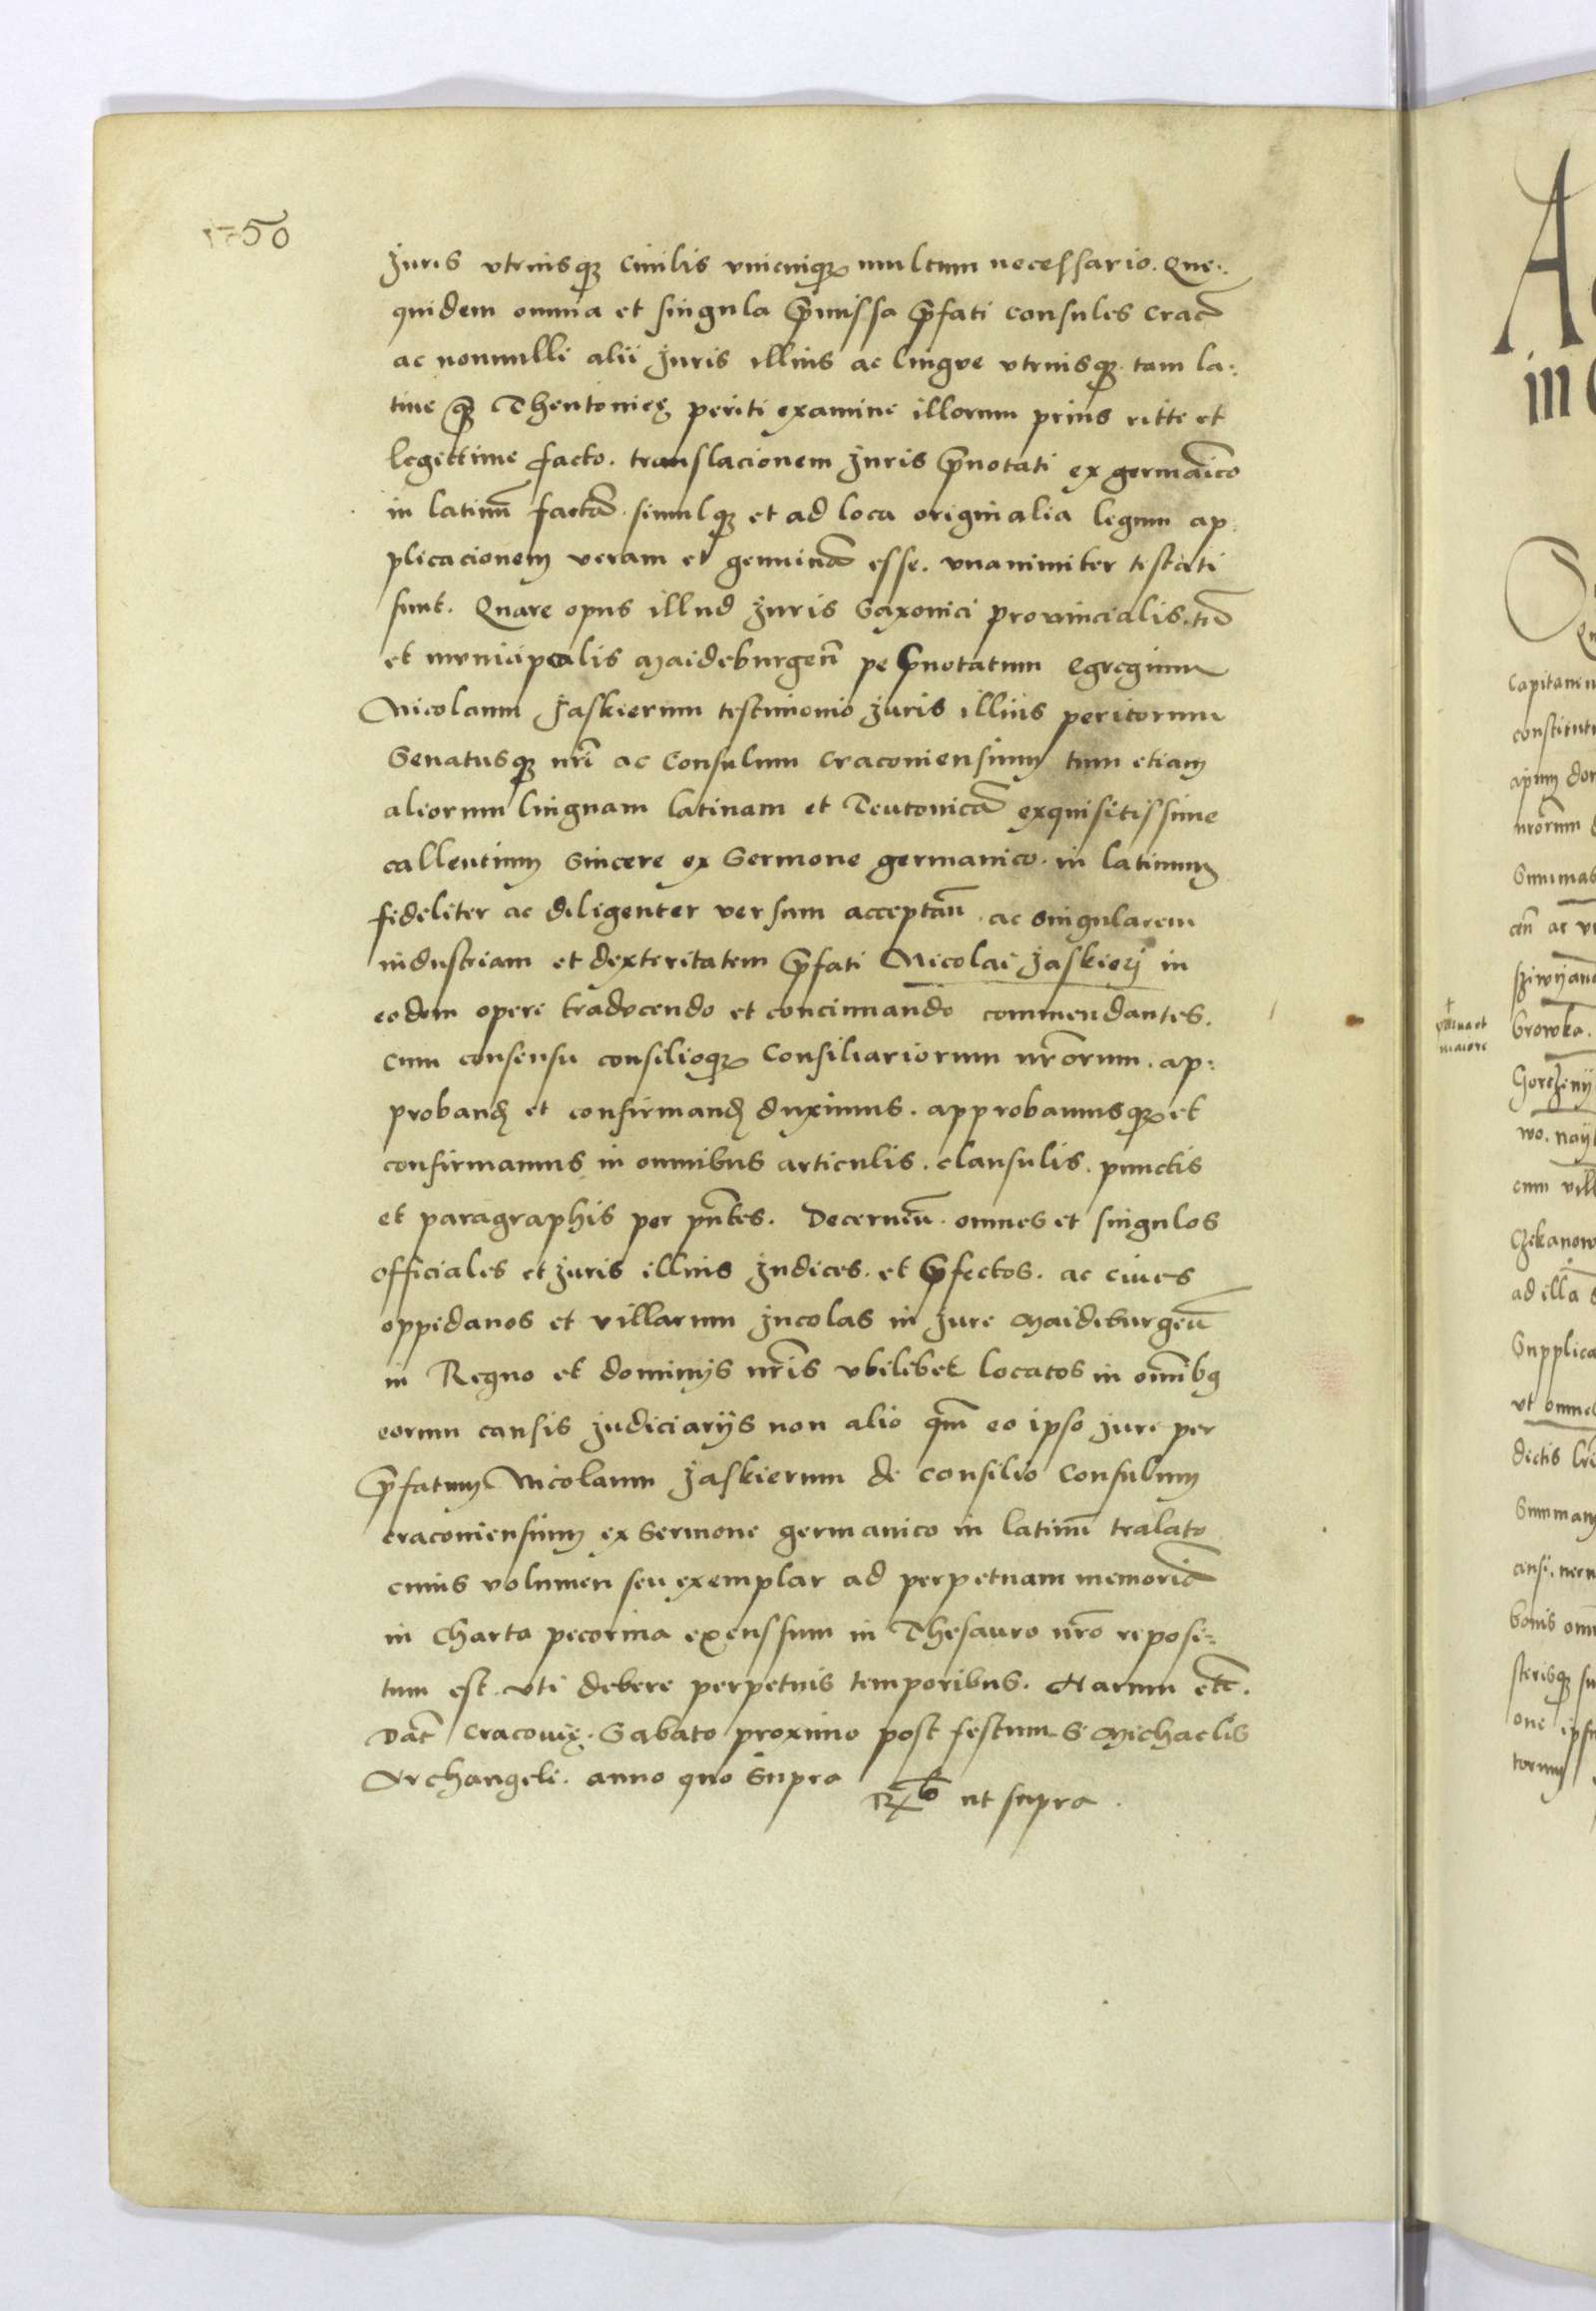 1750
Juris vtriusq3 Ciuilis vnicuiq3 multum necessario. Que.
quidem omnia et singula p̄missa p̄fati consules Crac̄
ac nonnulli alii Juris illius ac lingve vtriusq3. tam la:
tine q̄ Theutonicę periti examine illorum prius ritte et
legittime facto. translacionem Juris p̄notati ex germaīco
in latinū factā. simulq3 et ad loca originalia legum ap:
plicacionem veram et genuinā esse. vnanimiter testati
sunt. Quare opus illud Juris Saxonici provincialis. tū
et mvnicipalis Maideburgeñ pe p̄notatum Egregium
Nicolaum Jaskierum testimonio Juris illius peritorum
Senatusq3 nr̄i ac Consulum Cracouiensium tum etiam
aliorum linguam latinam et Teutonicā exquisitissime
callentium sincere ex Sermone germanico. in latinum
fideliter ac diligenter versum acceptañ. ac singularem
industriam et dexteritatem p̄fati Nicolai Jaskierj in
eodem opere tradvcendo et concinnando commendantes.
Cum consensu consilioq3 Consiliariorum nr̄orum. ap:
proband̄ et confirmand̄ duximus. approbamusq3 et
confirmamus in omnibus articulis. clausulis. punctis
et paragraphis per pn̄tes. Decerneñ. omnes et singulos
officiales et Juris illius Judices. et p̄fectos. ac ciues
oppidanos et villarum Jncolas in Jure Maideburgeñ
in Regno et dominijs nr̄is vbilibet locatos in om̄ibq
eorum causis Judiciarijs non alio qm̄ eo ipso Jure per
p̄fatum Nicolaum Jaskierum de consilio Consulum
cracouiensium ex Sermone germanico in latinū tralato
cuius volumen seu exemplar ad perpetuam memoriā
in Charta pecorina excussum in Thesauro nr̄o reposi:
tum est. vti debere perpetuis temporibus. Harum et̄c.
Dat̄ Cracouię. Sabato proximo post festum S. Michaelis
Archangeli. anno quo Supra
Rx̄to ut supra.
A
in
Capitaneu
constitut
apum
nrōrum
Summas
ac
Growka.
Gorczeny
wo. nay
cum vill
Czekanow
ad illā
Supplica
vt omne
dictis
Summam
bonis om̄
sterisq3 su
one ipsu
torum